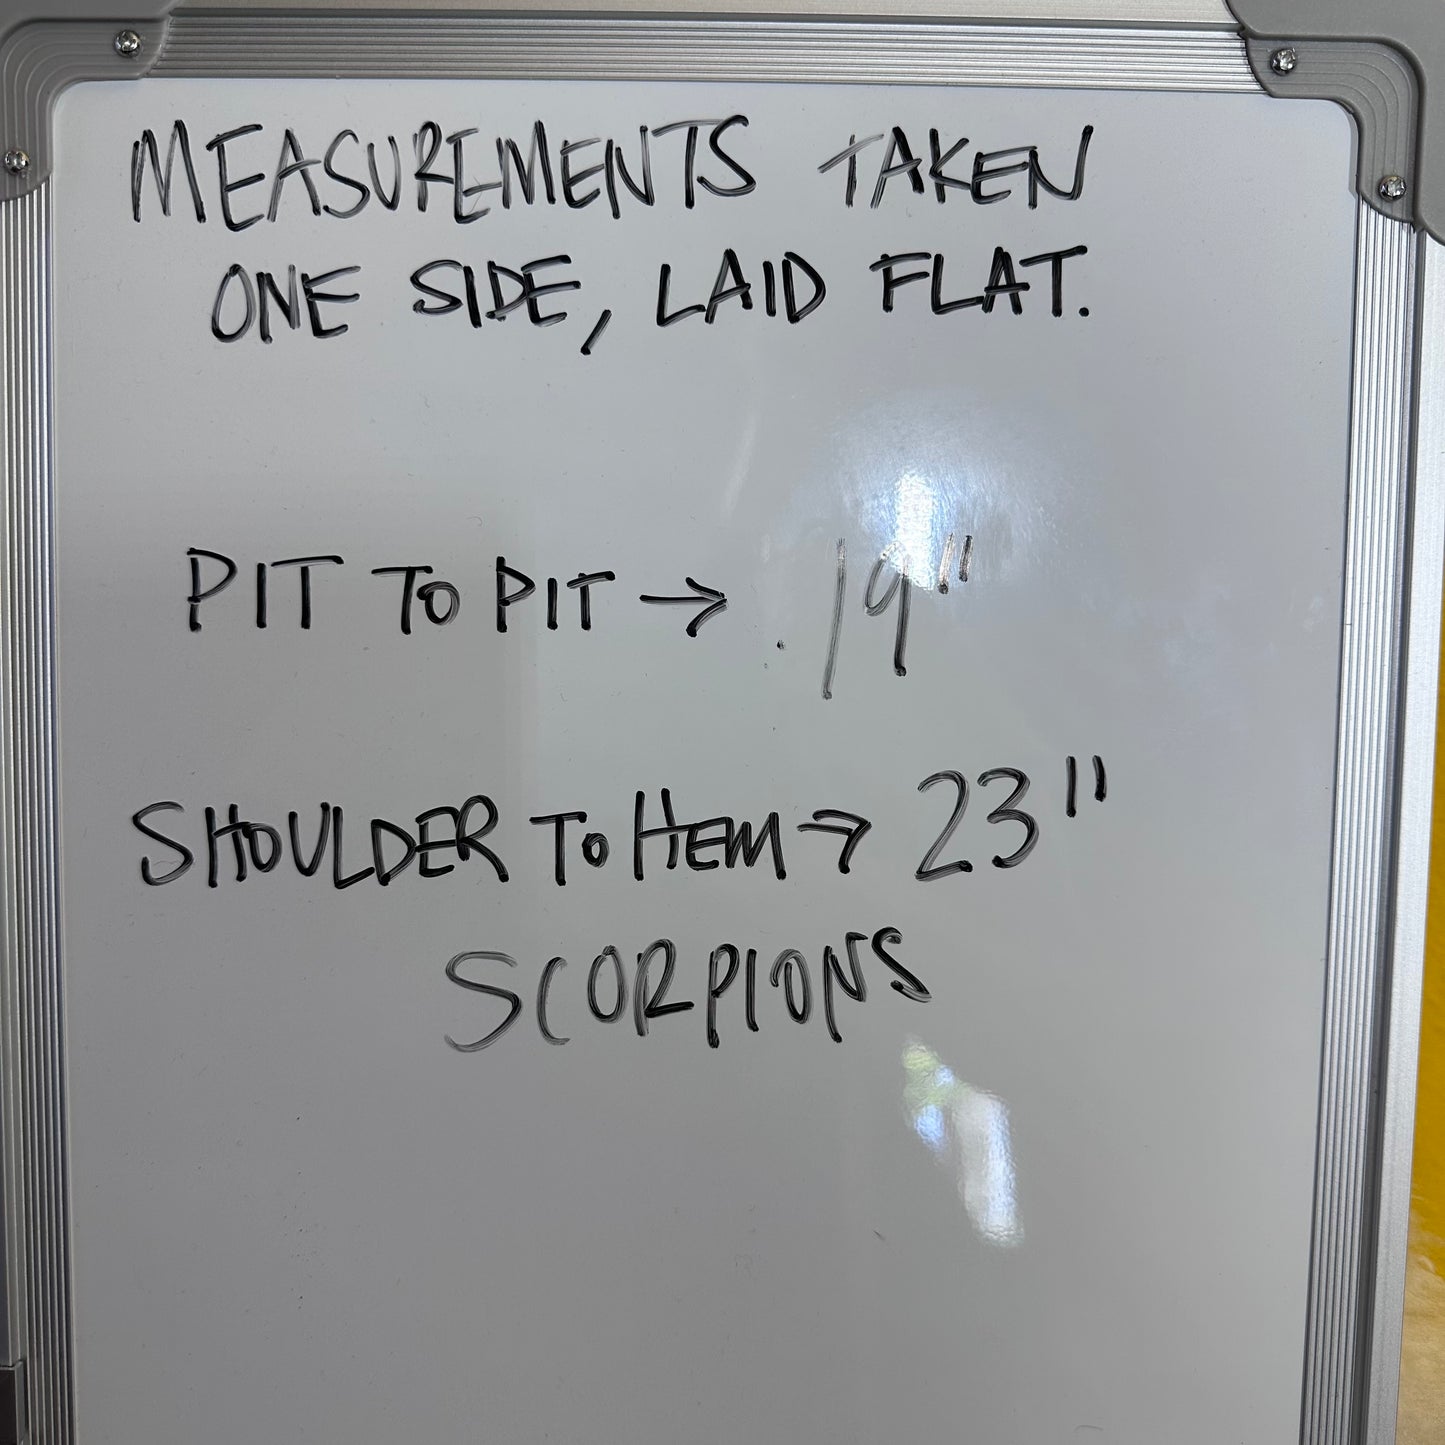 MEASUREMENTS TAKEN
ONE SIDE, LAID FLAT.
PIT TO PIT → 19"
SHOULDER TO HEM → 23"
SCORPIONS